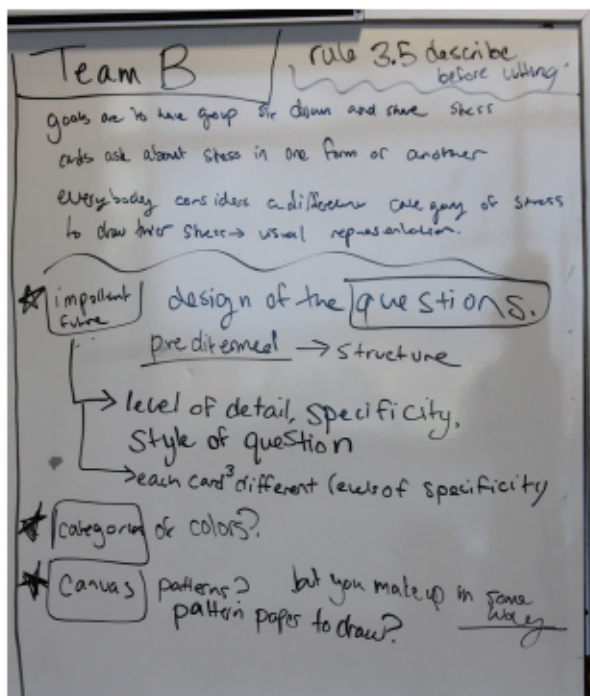 Team B
rule 3.5 describe
before cutting
goals are to have group sit down and share stress
cards ask about stress in one form or another
everybody considers a different category of stress
to draw their stress → visual representation.
important
future
design of the questions.
preditermed → structure
level of detail, specificity,
style of question
→ each card 3 different levels of specificity
categories or colors?
Canvas patterns? but you make up in some
way
pattern paper to draw?